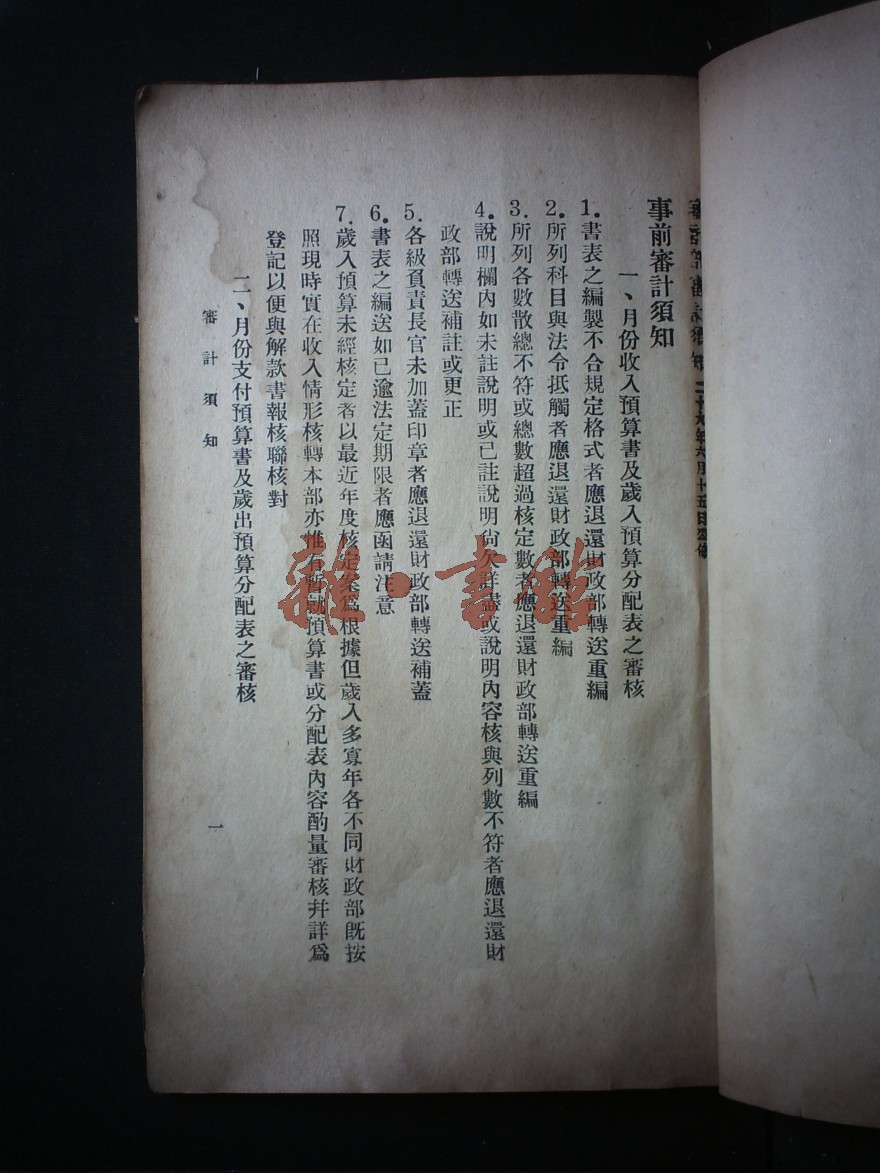 審計部審計須知 二十九年六月十五日公佈
事前審計須知
一、月份收入預算書及歲入預算分配表之審核
1.書表之編製不合規定格式者應退還財政部轉送重編
2.所列科目與法令抵觸者應退還財政部轉送重編
3.所列各數散總不符或總數超過核定數者應退還財政部轉送重編
4.說明欄內如未註說明或已註說明尙欠詳盡或說明內容核與列數不符者應退還財
政部轉送補註或更正
5.各級負責長官未加蓋印章者應退還財政部轉送補蓋
6.書表之編送如已逾法定期限者應函請注意
7.歲入預算未經核定者以最近年度核定案爲根據但歲入多寡年各不同財政部旣按
照現時實在收入情形核轉本部亦惟有暫就預算書或分配表內容酌量審核幷詳爲
登記以便與解款書報核聯核對
二、月份支付預算書及歲出預算分配表之審核
審計須知
一
雜·書館